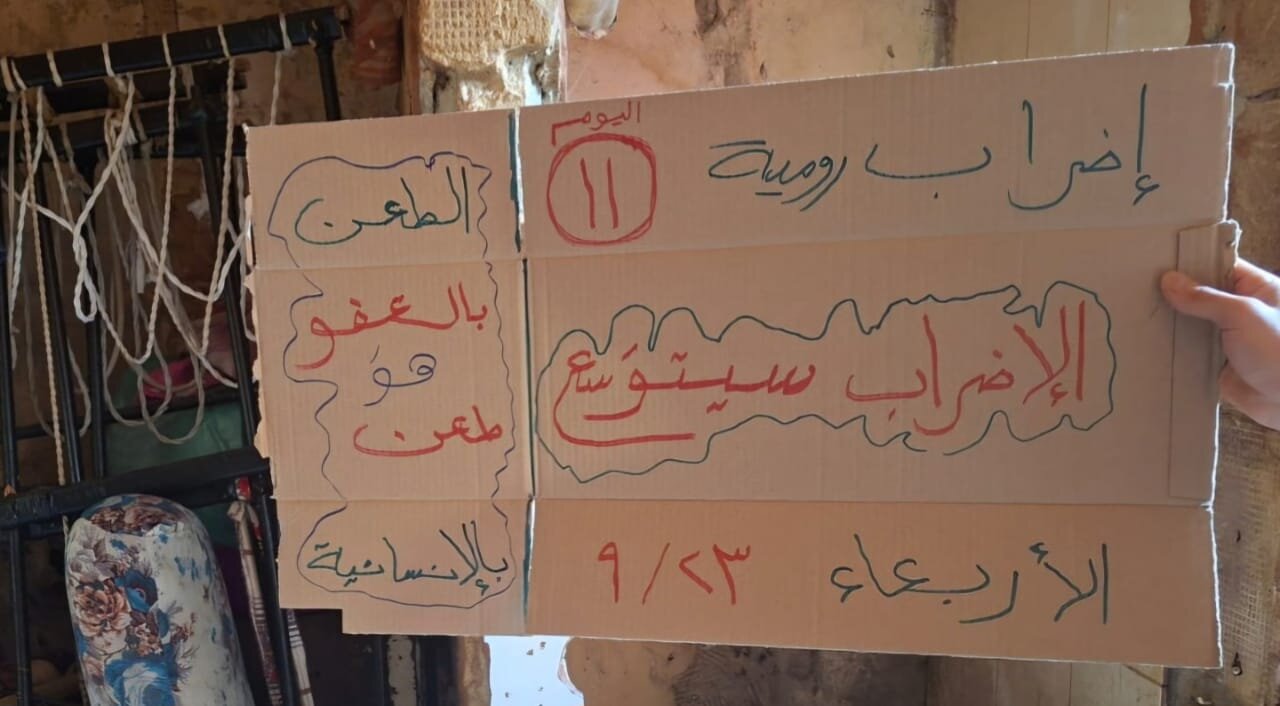 إضراب رومية
اليوم
١١
الإضراب سيتوَسع
الأربعاء ٢٣/٩
الطعن
بالعفو
هوَ
طعن
بالإنسانية